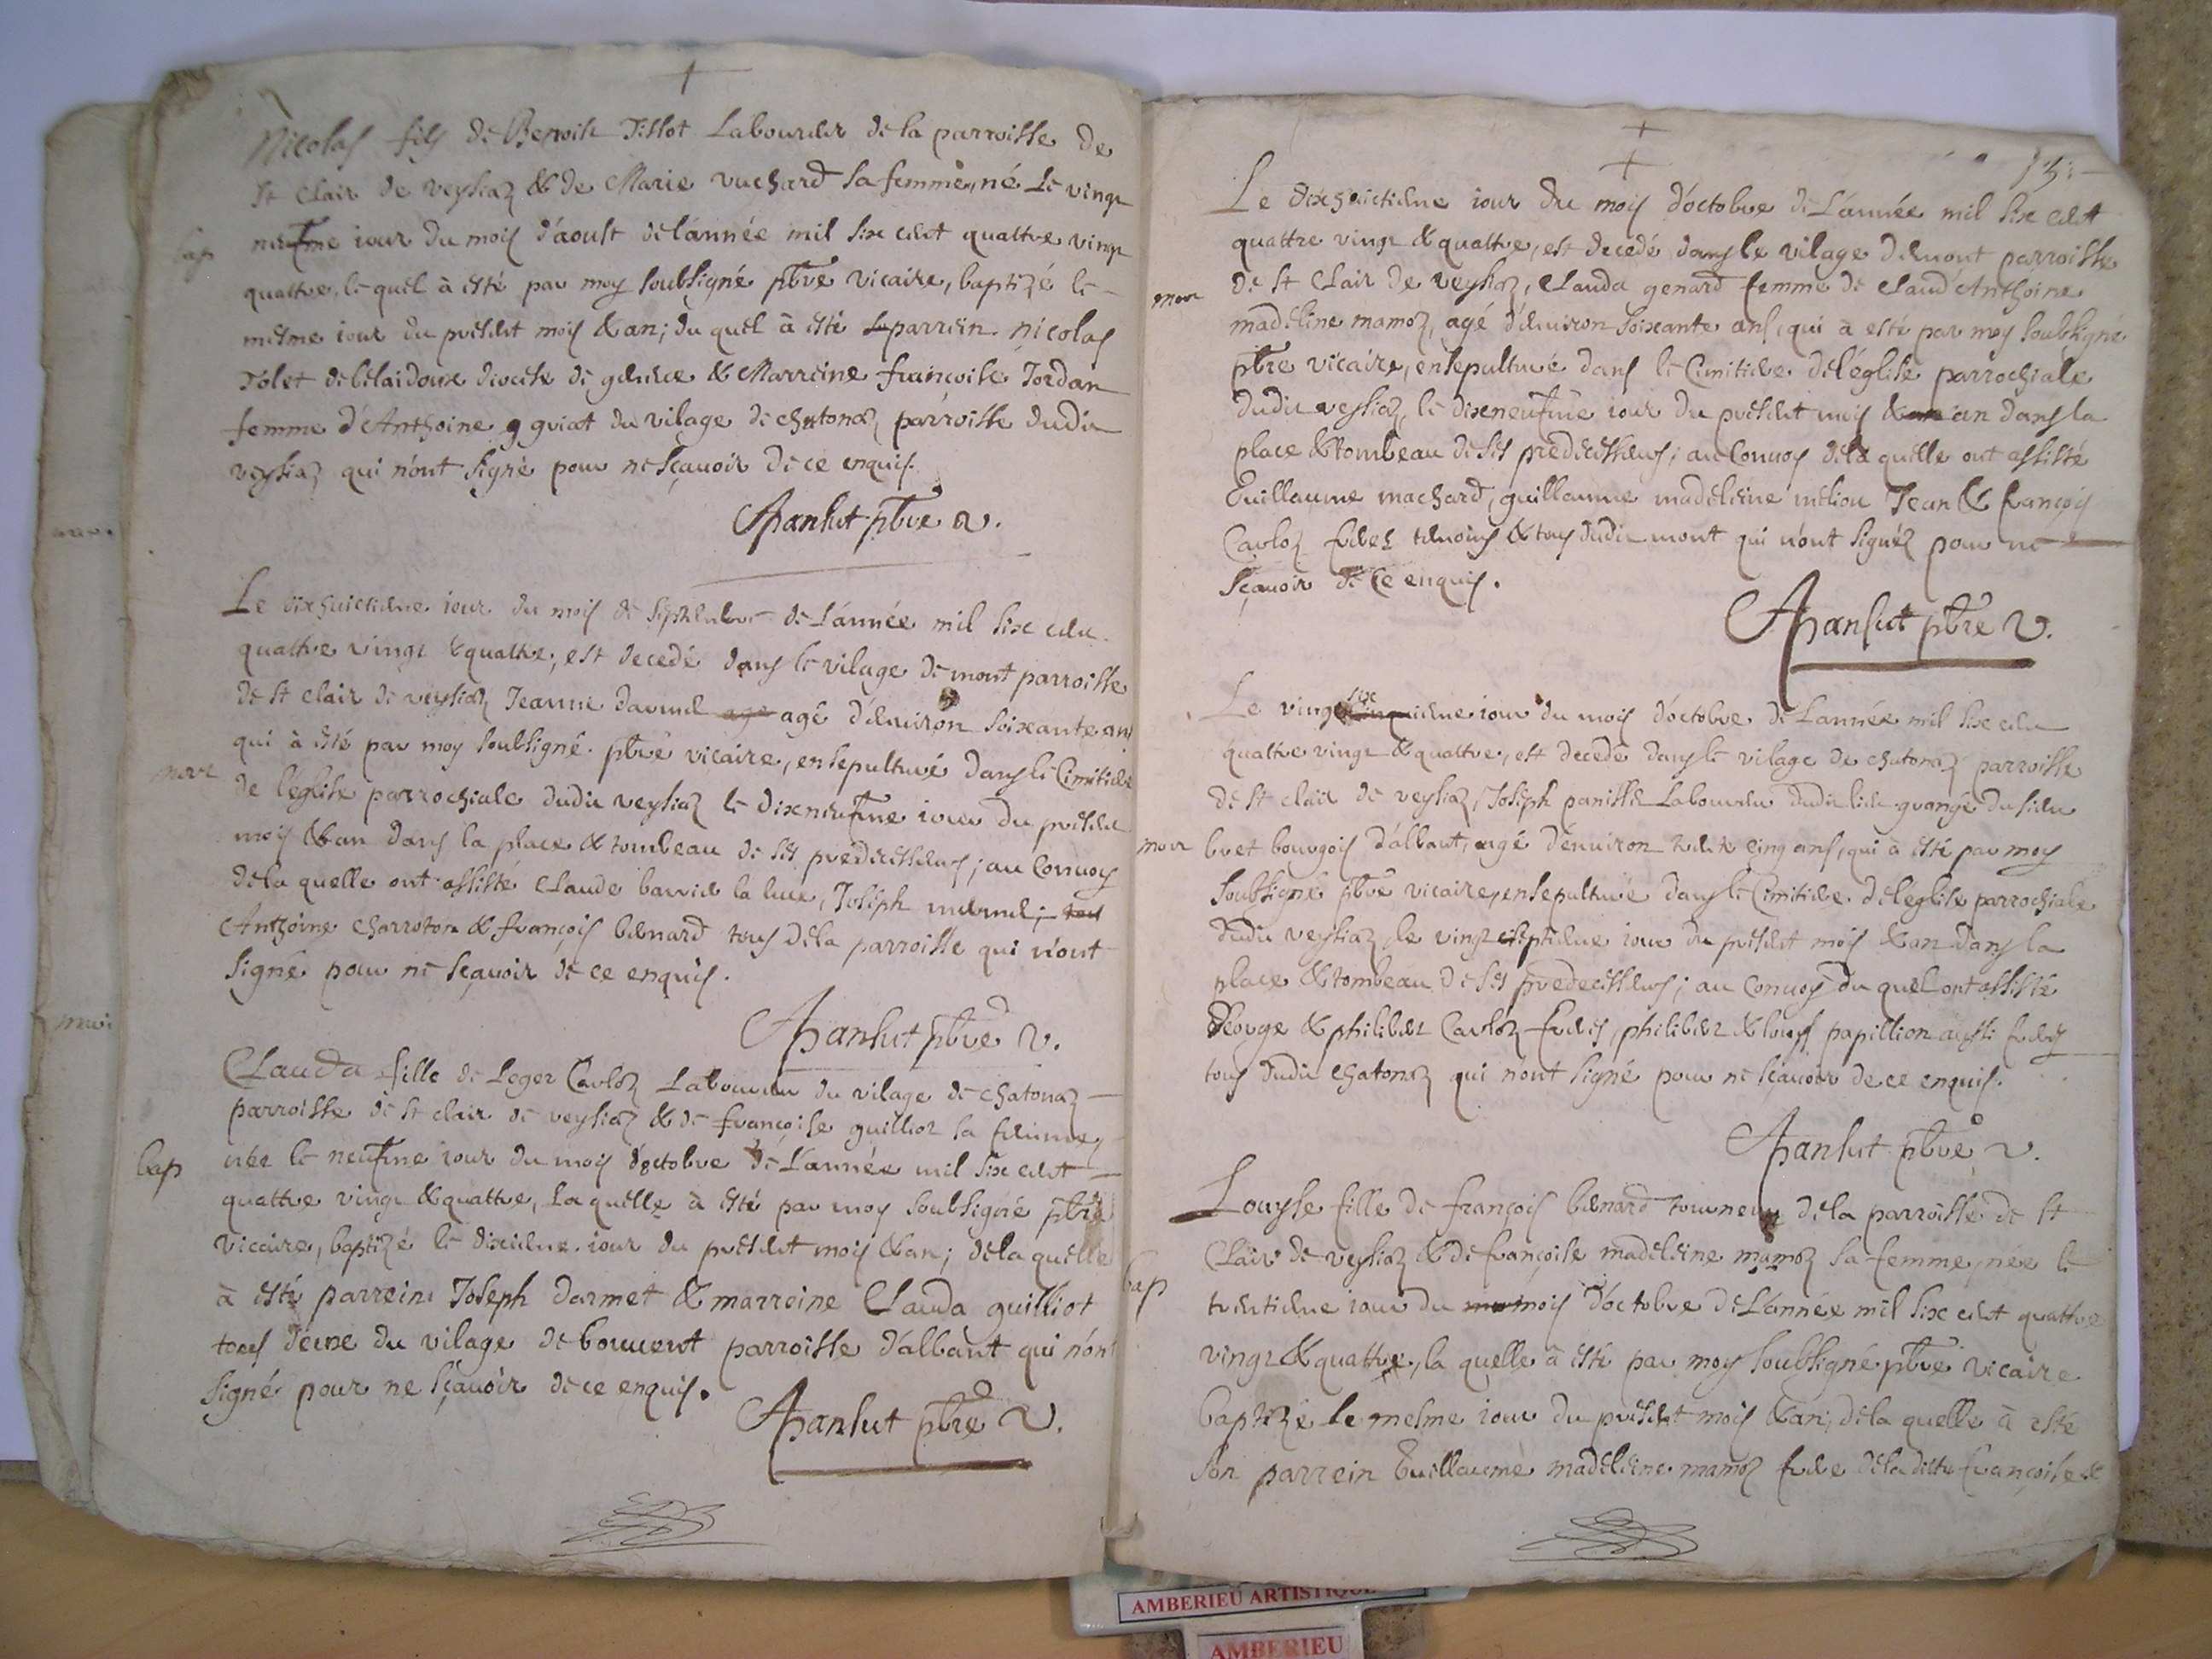 Nicolas fils de Benoist Tissot Laboureur de la parroisse de
st Clair de veysiaz & de Marie vuchard sa femme, né le vingt
bap
neufme iour du mois d'aoust de l'année mil six cent quattre vingt
quattre, le quel à esté par moy soubsigné ptre vicaire, baptizé le
mesme iour du present mois & an; du quel à esté parrein nicolas
diocese de geneve & Marreine francoise Jordan
femme d'Anthoine guiat du vilage de chatonaz parroisse dudit
veysiaz qui n'ont signé pour ne sçavoir de ce enquis.
ptre v.
Le dixhuictieme iour du mois de septembre de L'année mil six cent
quattre vingt & quattre, est decedé dans le vilage de mont parroisse
de st clair de veysiaz Jeanne agé d'environ soixante ans
qui à esté par moy soubsigné ptre vicaire, ensepulturé dans le Cimitiere
mort
de l'eglise parrochiale dudit veysiaz le dixneufme iour du present
mois & an dans la place & tombeau de ses predecesseurs; au Convoy
de la quelle ont assisté Claude Joseph
Anthoine Charroton & françois benard tous de la parroisse qui n'ont
signé pour ne sçavoir de ce enquis.
ptre v.
Clauda fille de Leger Carloz Laboureur du vilage de chatonaz
parroisse de st clair de veysiaz & de françoise guilliot sa femme,
bap
née le neufme iour du mois d'octobre de L'année mil six cent
quattre vingt & quattre, La quelle à esté par moy soubsigné ptre
vicaire, baptizé le dixieme iour du present mois & an; de la quelle
à esté parrein Joseph darmet & marreine Clauda guilliot
tous deux du vilage de bouvent parroisse d'allant qui n'ont
signé pour ne sçavoir de ce enquis.
ptre v.
Le dixhuictieme iour du mois d'octobre de L'année mil six cent
quattre vingt & quattre, est decedé dans le vilage de mont parroisse
mort
de st Clair de veysiaz, Clauda genard femme de Claud'Anthoine
madeleine mamoz, agé d'environ soixante ans, qui à esté par moy soubsigné
ptre vicaire, ensepulturé dans le Cimitiere de l'église parrochiale
dudit veysiaz, le dixneufme iour du present mois & an dans la
place & tombeau de ses predecesseurs; au Convoy de la quelle ont assisté
Guillaume machard, guillaume madeleine Jean & françois
Carloz freres temoins & tous dudit mont qui n'ont signéz pour ne
sçavoir de ce enquis.
ptre v.
six
Le vingt ieme iour du mois d'octobre de L'année mil six cent
quattre vingt & quattre, est decedé dans le vilage de chatonaz parroisse
de st clair de veysiaz, Joseph panisset Laboureur dudit lieu grangé du sieur
mort
bret bourgois d'allant, agé d'environ trente cinq ans, qui à esté par moy
soubsigné ptre vicaire, ensepulturé dans le Cimitiere de l'eglise parrochiale
dudit veysiaz, le vingt septieme iour du present mois & an dans la
place & tombeau de ses predecesseurs; au Convoy du quel ont assisté
George & philibert Carloz freres, philibert & louys papillion aussi freres
tous dudit chatonaz qui n'ont signé pour ne sçavoir de ce enquis.
ptre v.
Louyse fille de françois benard tourneur de la parroisse de st
Clair de veysiaz & de françoise madeleine mamoz sa femme, née le
bap
trentieme iour du mois d'octobre de L'année mil six cent quattre
vingt & quattre, la quelle à esté par moy soubsigné ptre vicaire
baptizé le mesme iour du present mois & an; de la quelle à esté
son parrein Guillaume madeleine mamoz frere de la ditte françoise &
AMBERIEU ARTISTIQUE
AMBERIEU